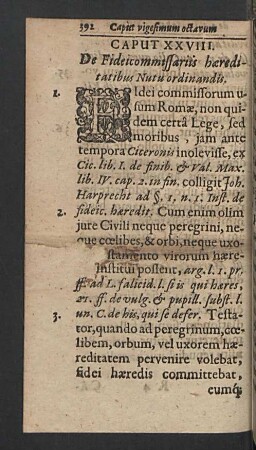 392 Caput vigesimum octavum
CAPUT XXVIII.
De Fideicommissariis hæredi-
tatibus Nutu ordinandis.
1. FIdei commissorum u-
sum Romæ, non qui-
dem certâ Lege, sed
moribus, jam ante
tempora Ciceronis inolevisse, ex
Cic. lib. I. de finib. & Val. Max.
lib. IV. cap. 2. in fin. colligit Joh.
Harprecht ad §. 1. n. 1. Inst. de
2. fideic. hæredit. Cum enim olim
jure Civili neque peregrini, ne-
que cœlibes, & orbi, neque uxo-
stamento virorum hære-
Institui possent, arg. l. 1. pr.
ff. ad L. falicid. l. si is qui hæres,
21. ff. de vulg. & pupill. subst. l.
3. un. C. de his, qui se defer. Testa-
tor, quando ad peregrinum, cœ-
libem, orbum, vel uxorem hæ-
reditatem pervenire volebat,
fidei hæredis committebat,
eumq́;